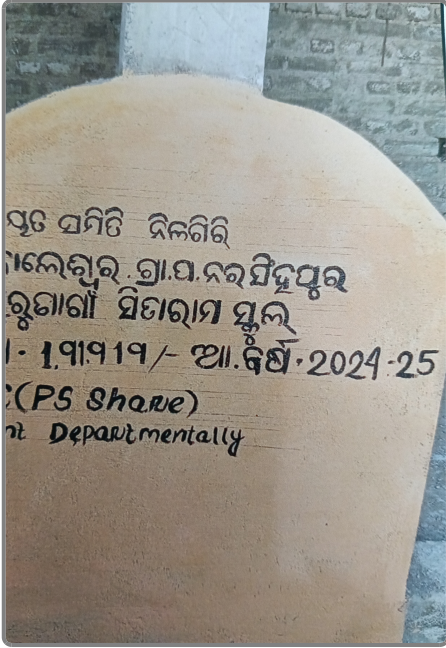 ୟତ ସମିତି ନିଳଗିରି
ାଲେଶ୍ୱର . ଗ୍ରା.ପ. ନରସିଂହପୁର
ରୁଡାଗାଁ ସିତାରାମ ସ୍କୁଲ
/- ଆ.ବର୍ଷ.2024-25
(PS Share)
nt Departmentally